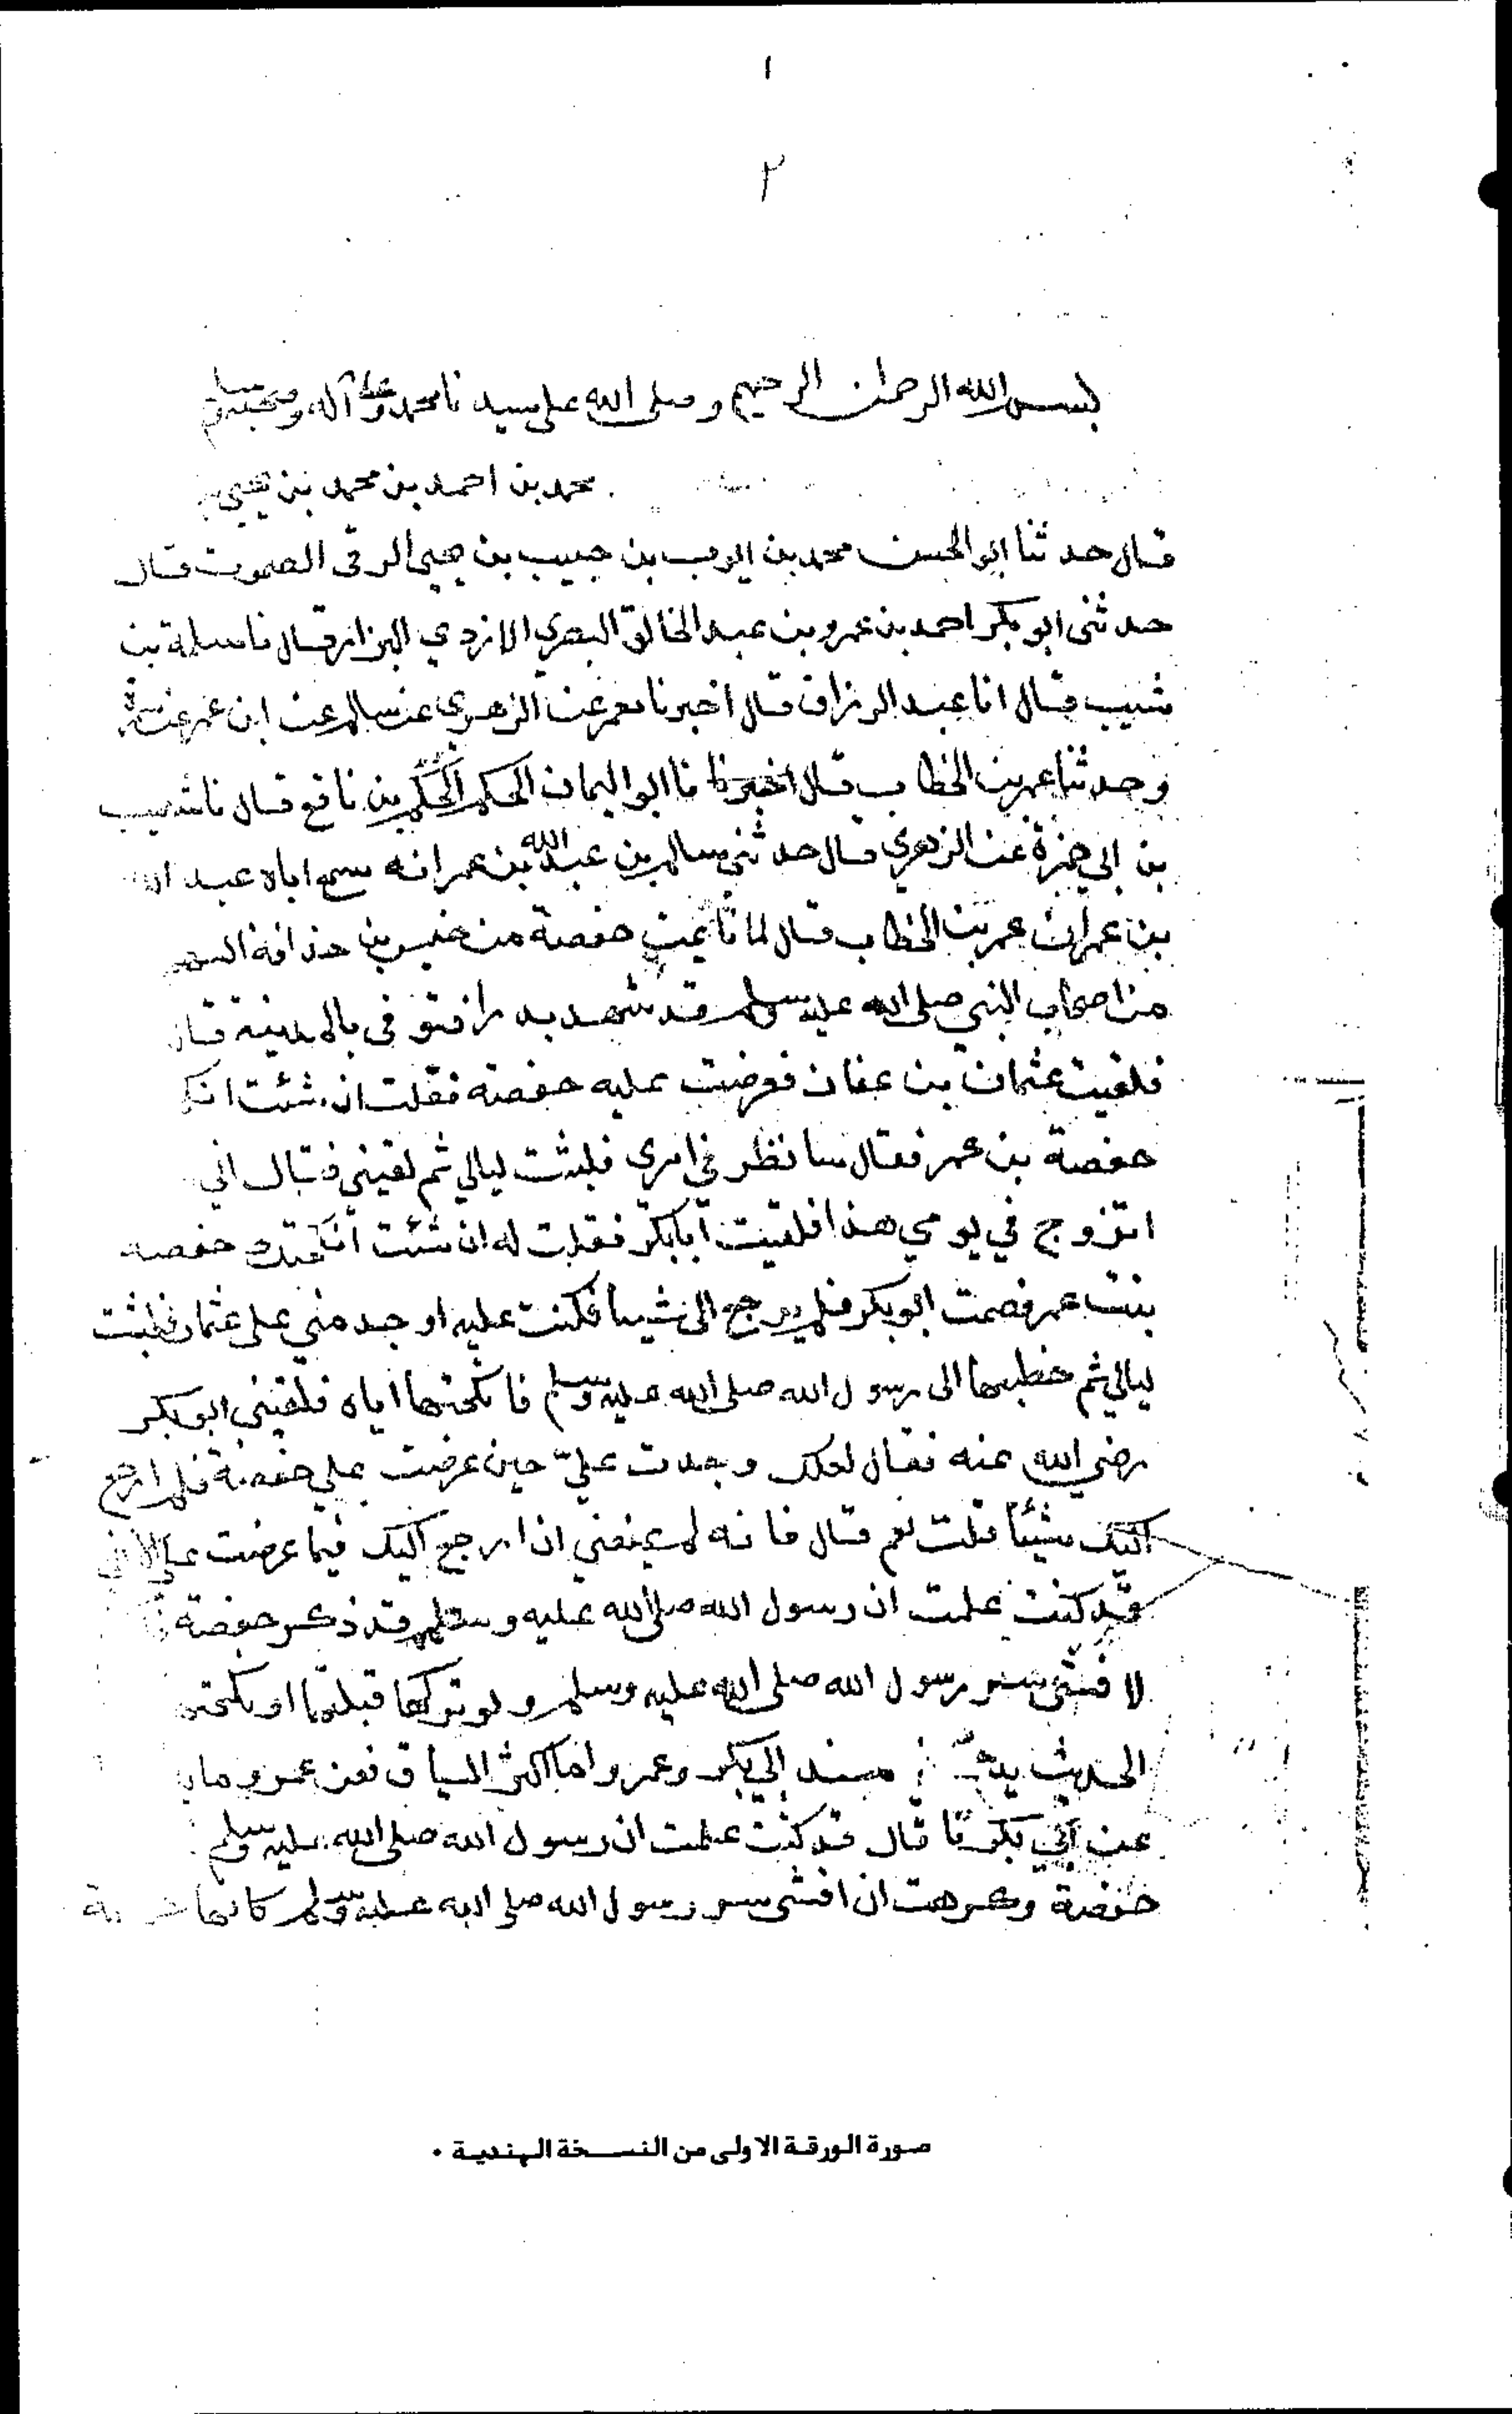 ١
٢
بسم الله الرحمن الرحيم وصلى الله على سيدنا محمد وعلى آله وصحبه وسلم
محمد بن احمد بن محمد بن يحيى
قال حدثنا ابوالحسن محمد بن ايوب بن حبيب بن يحيى الرقى الصموت قال
حدثنى ابو بكر احمد بن عمرو بن عبد الخالق البصري الازدي البزار قال نا سلمة بن
شبيب قال انا عبد الرزاق قال اخبرنا معمر عن الزهري عن سالم عن ابن عمر عن
وحدثنا عمر بن الخطاب قال اخبرنا نا ابو اليمان الحكم الحكم بن نافع قال نا شعيب
بن ابي حمزة عن الزهري قال حدثنى سالم بن عبد الله بن عمر انه سمع اباه عبد الله
بن عمر ان عمر بن الخطاب قال لما تأيمت حفصة من خنيس بن حذافة السهم
من اصحاب النبي صلى الله عليه وسلم قد شهد بدرا فتوفى بالمدينة قال
فلقيت عثمان بن عفان فعرضت عليه حفصة فقلت ان شئت انك
حفصة بن عمر فقال سانظر في امري فلبثت ليالي ثم لقيني فقال اني
اتزوج في يومي هذا فلقيت أبابكر فقلت له ان شئت أنكحتك حفصه
بنت عمر فصمت ابو بكر فلم يرجع الى شيئا فكنت عليه اوجد مني على عثمان فلبثت
ليالي ثم خطبها الى رسول الله صلى الله عليه وسلم فانكحتها اياه فلقيني ابو بكر
رضي الله عنه فقال لعلك وجدت عليّ حين عرضت علي حفصة فلم ارجع
اليك شيئاً قلت نعم قال فانه لم يمنعني اذا رجع اليك فيما عرضت علي الا اني
قد كنت علمت ان رسول الله صلى الله عليه وسلم قد ذكر حفصة
لا فشى سر رسول الله صلى الله عليه وسلم ولو تركها قبلتها او نكحته
الحديث مسند ابي بكر وعمر واما اكثر السياق فعن عمر وما
عن أبي بكر قال قد كنت علمت ان رسول الله صلى الله عليه وسلم
حفصة وكرهت ان افشى سر رسول الله صلى الله عليه وسلم كانها
صورة الورقة الاولى من النسخة الهندية ٠